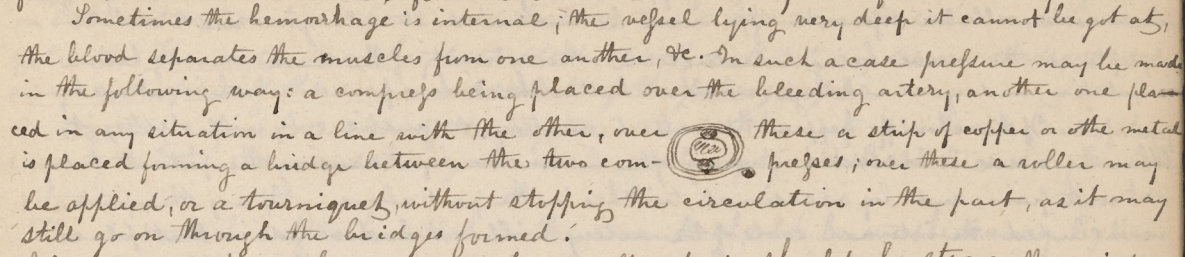 Sometimes the hemorrhage is internal; the veſsel lying very deep it cannot be got at,
the blood separates the muscles from one another, &c. In such a case preſsure may be made
in the following way: a compreſs being placed over the bleeding artery, another one pla-
ced in any situation in a line with the other, over these a strip of copper or othe metal
is placed forming a bridge between the two com- preſses; over these a roller may
be applied, or a tourniquet, without stopping the circulation in the part, as it may
still go on through the bridges formed.